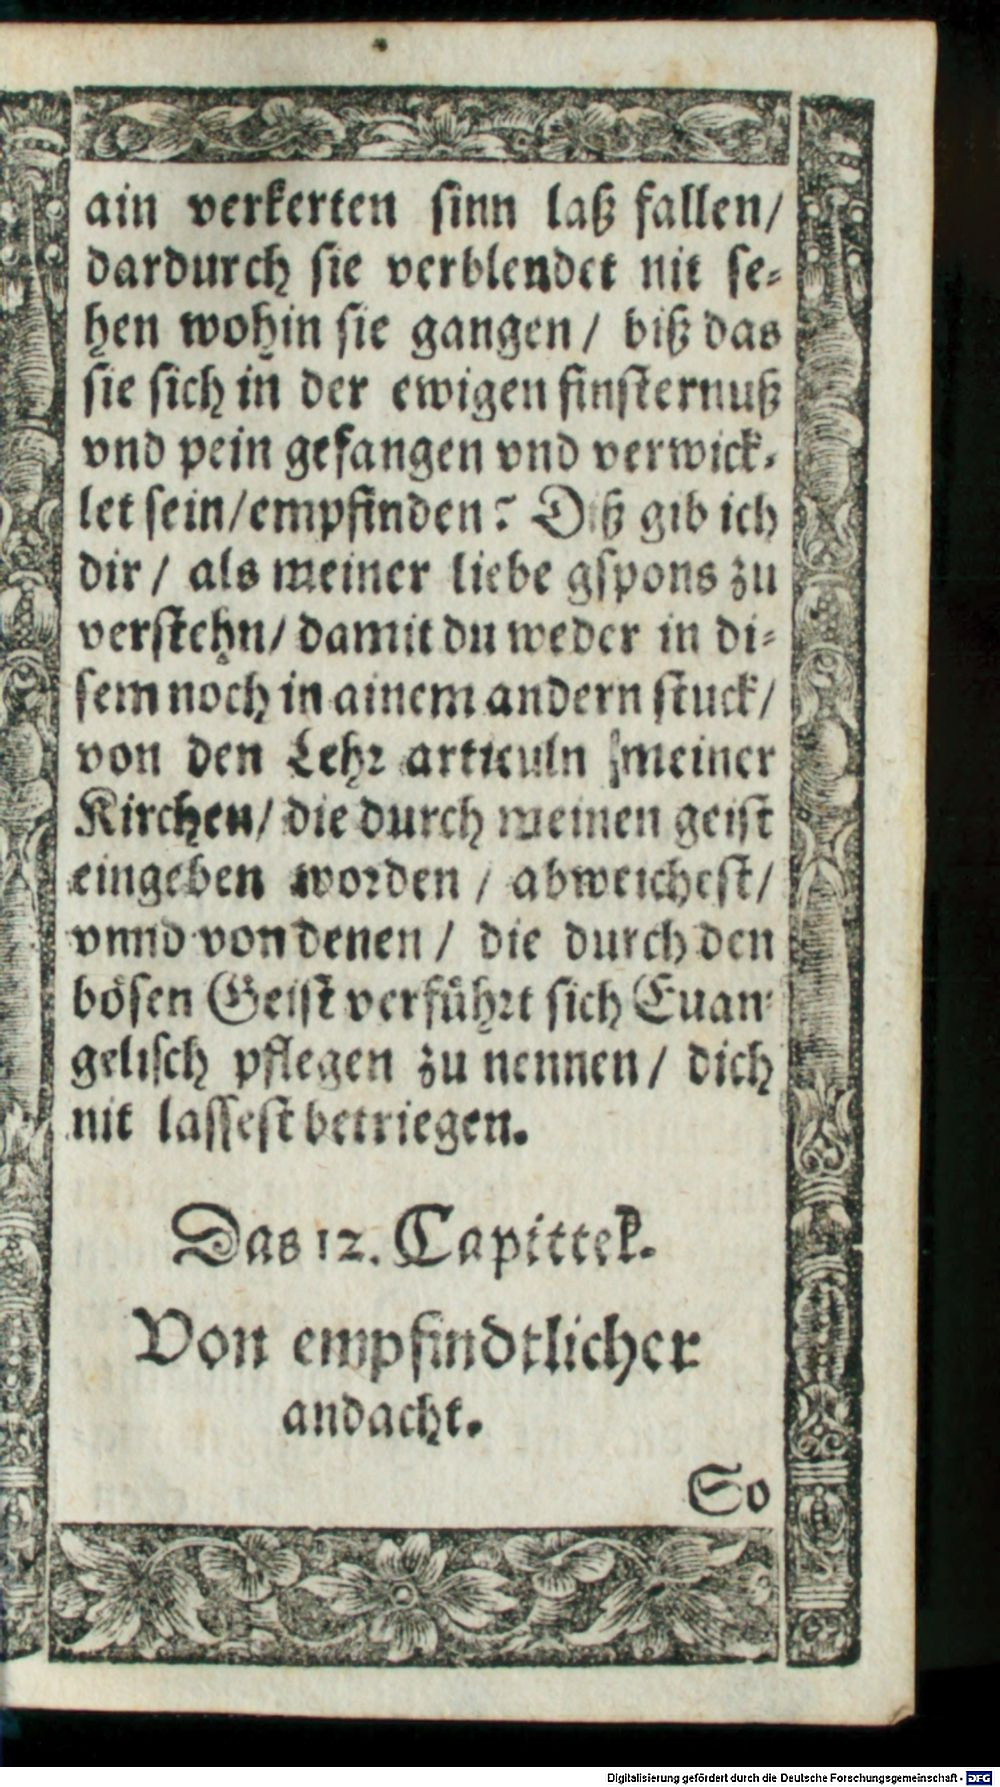 ain verkerten sinn laß fallen/
dardurch sie verblendet nit se-
hen wohin sie gangen / biß das
sie sich in der ewigen finsternuß
vnd pein gefangen vnd verwick-
let sein/empfinden? Diß gib ich
dir / als meiner liebe gspons zu
verstehn/ damit du weder in di-
sem noch in ainem andern stuck/
von den Lehr articuln meiner
Kirchen/ die durch meinen geist
eingeben worden / abweichest/
vnnd von denen / die durch den
bösen Geist verführt sich Euan-
gelisch pflegen zu nennen / dich
nit lassest betriegen.
Das 12. Capittel.
Von empfindtlicher
andacht.
So
Digitalisierung gefördert durch die Deutsche Forschungsgemeinschaft - DFG